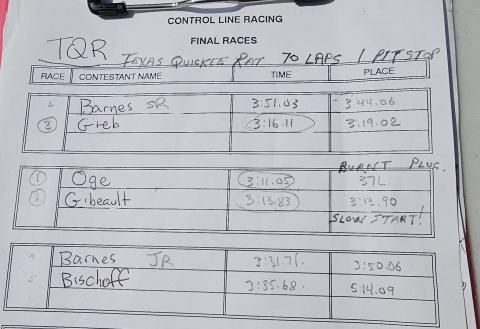 CONTROL LINE RACING
FINAL RACES
TQR TEXAS QUICKEE RAT 70 LAPS 1 PIT STOP
RACE CONTESTANT NAME TIME PLACE
Barnes SR 3:51.03 3:44.06
3 Greb 3:16.11 3:19.02
BURNT PLUG.
1 Oge 3:11.05 37L
2 Gibeault 3:13.83 3:13.90
SLOW START!
Barnes JR 3:31.71. 3:50.06
5 Bischoff 3:35.68. 5:14.09